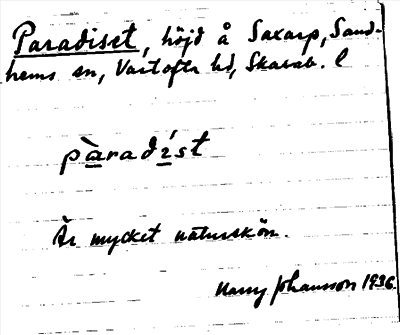 Paradiset, höjd å Saxarp, Sand-
hems sn, Vartofta hd, Skarab. l
pàradíst
Är mycket naturskön.
Harry Johansson 1936.